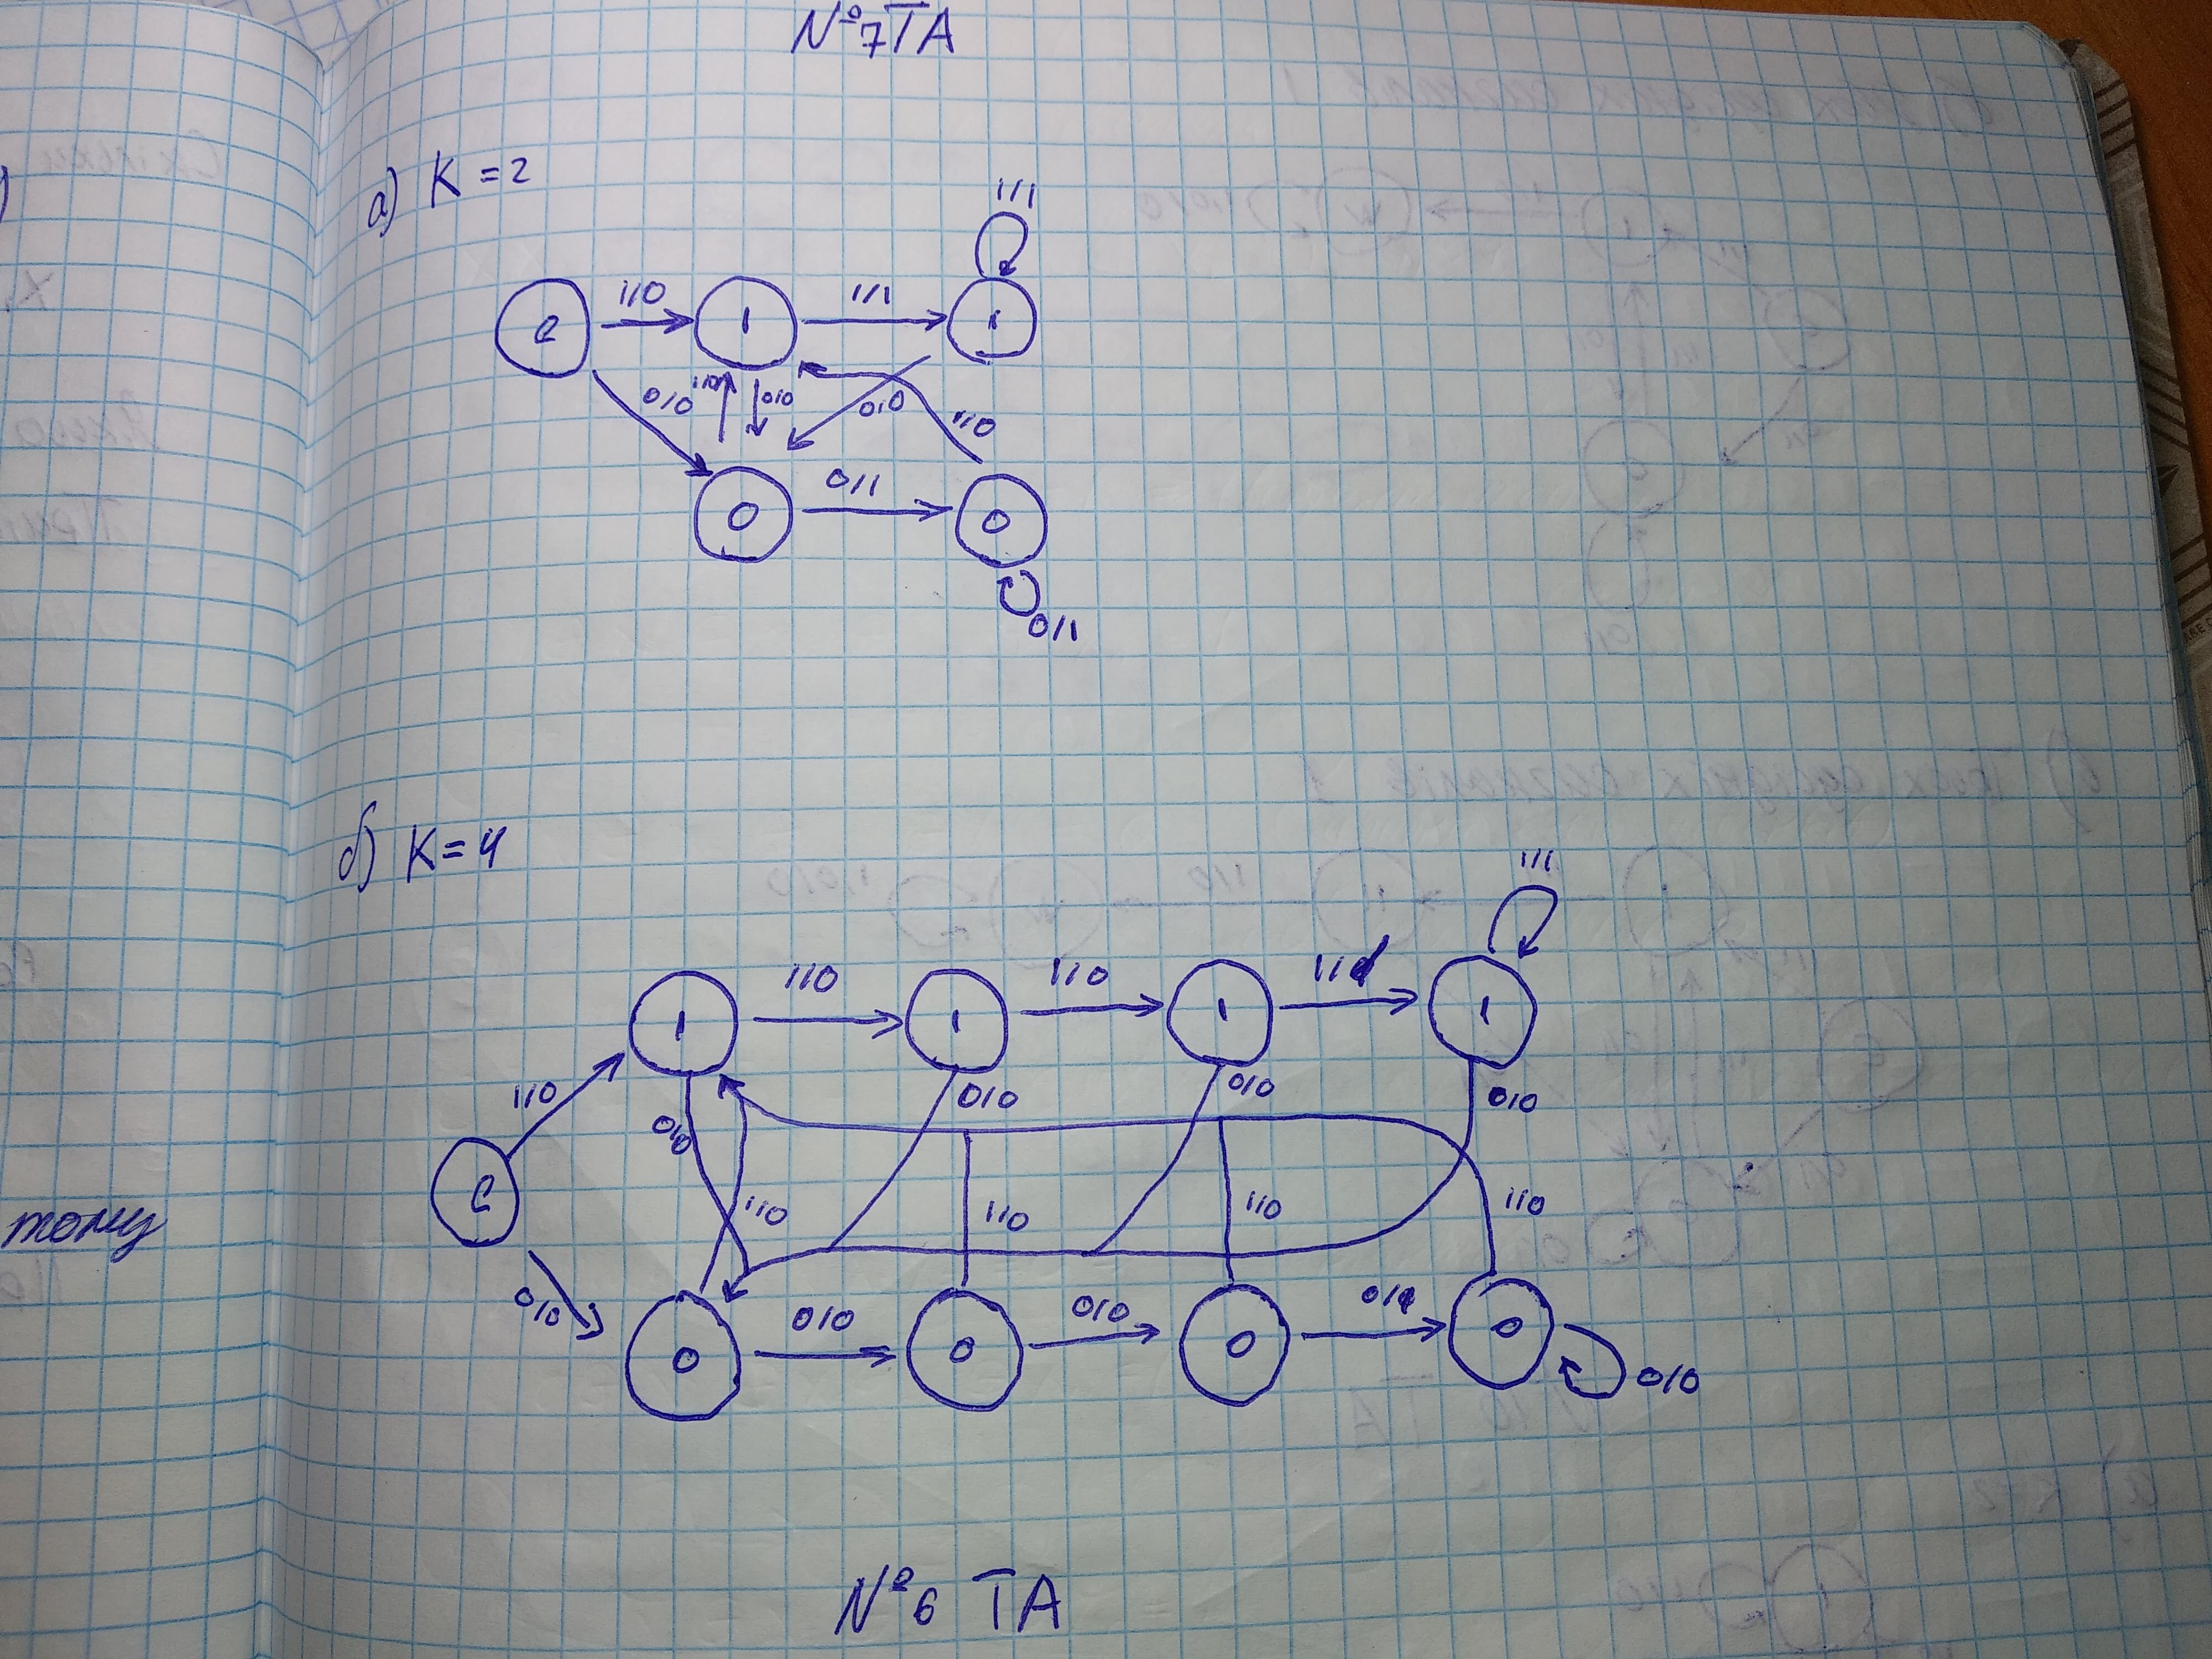 №7 ТА
а) K = 2
1/1
1/0 1/1
e 1 1
0/0 1/0 0/0 0/0 1/0
0/1
0 0
0/1
б) K = 4
1/1
1/0 1/0 1/1
1 1 1 1
1/0 0/0 0/0 0/0 0/0
e
1/0 1/0 1/0 1/0
тому
0/0 0/0 0/0 0/1
0 0 0 0
0/0
№6 ТА